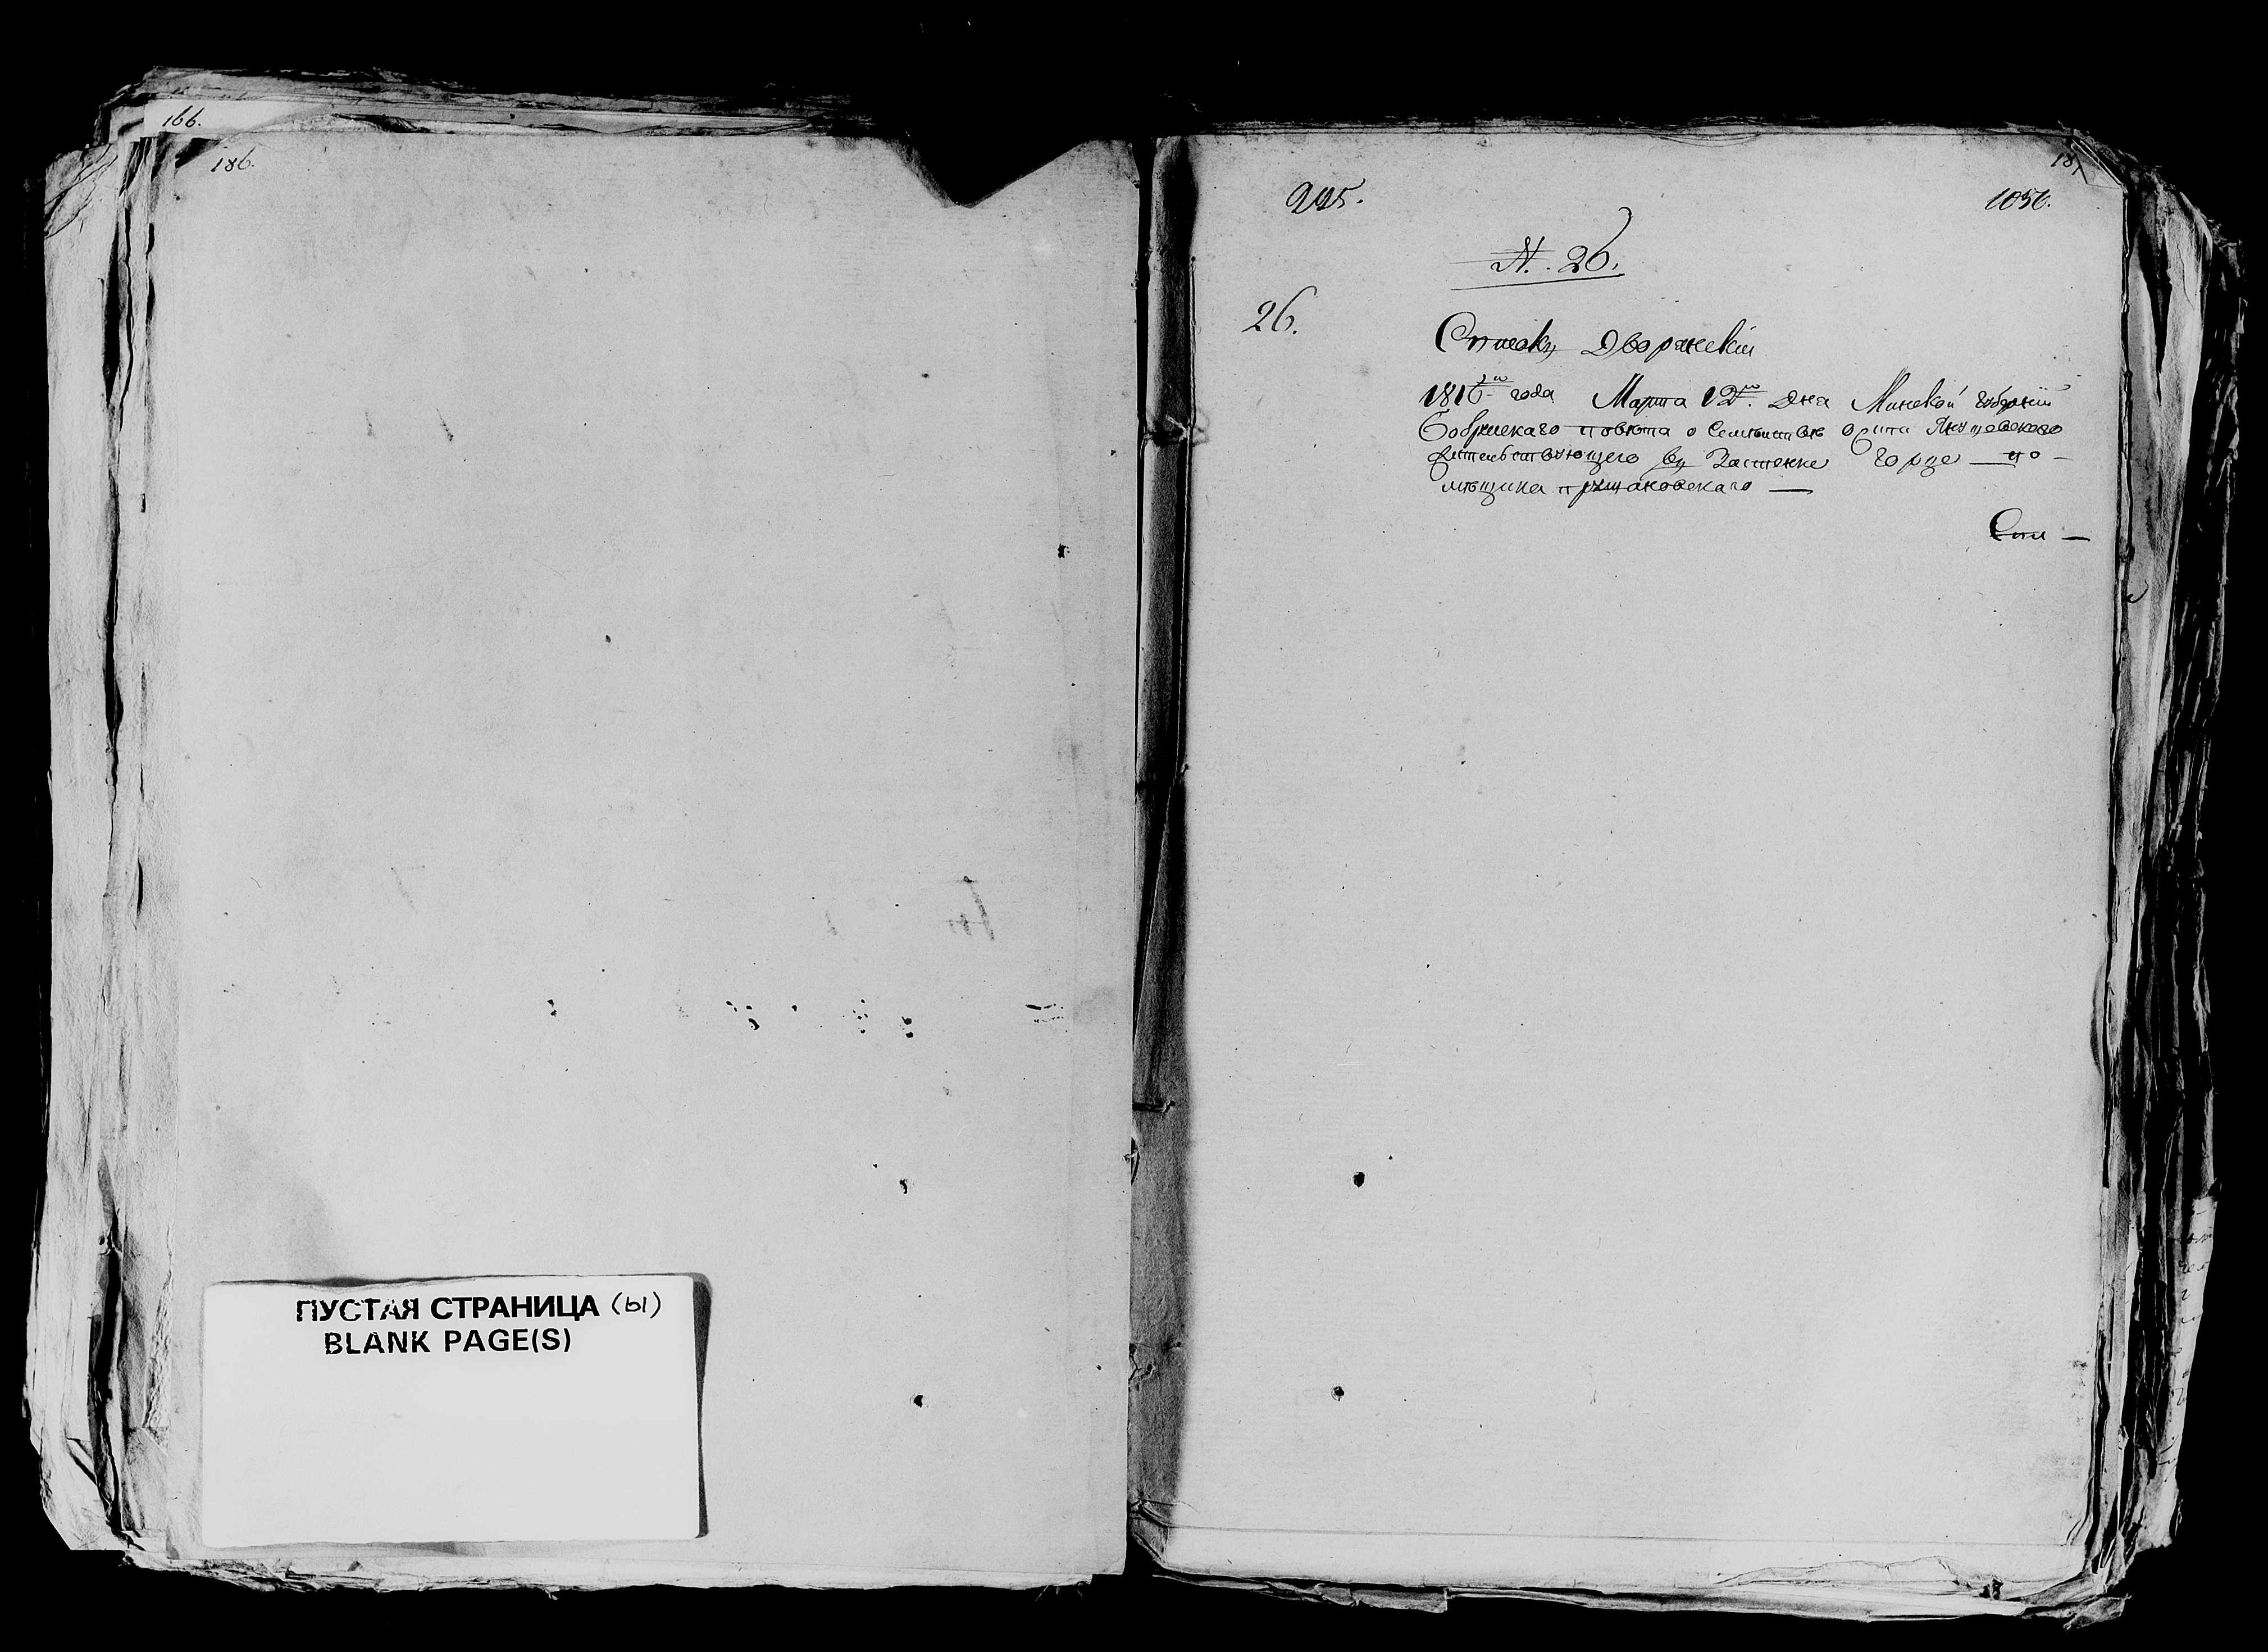 166.
186.
ПУСТАЯ СТРАНИЦА (ы)
BLANK PAGE(S)
187
1056.
N. 26.
26.
Списокъ Дворянскій
1816го года Марта 12го Дня Минской Губерніи
Бобруйскаго повѣта о Семѣйствѣ Осипа Якушовского
Жительствующего въ Застенке Горце — по-
мѣщика пршаковскаго —
Спи —